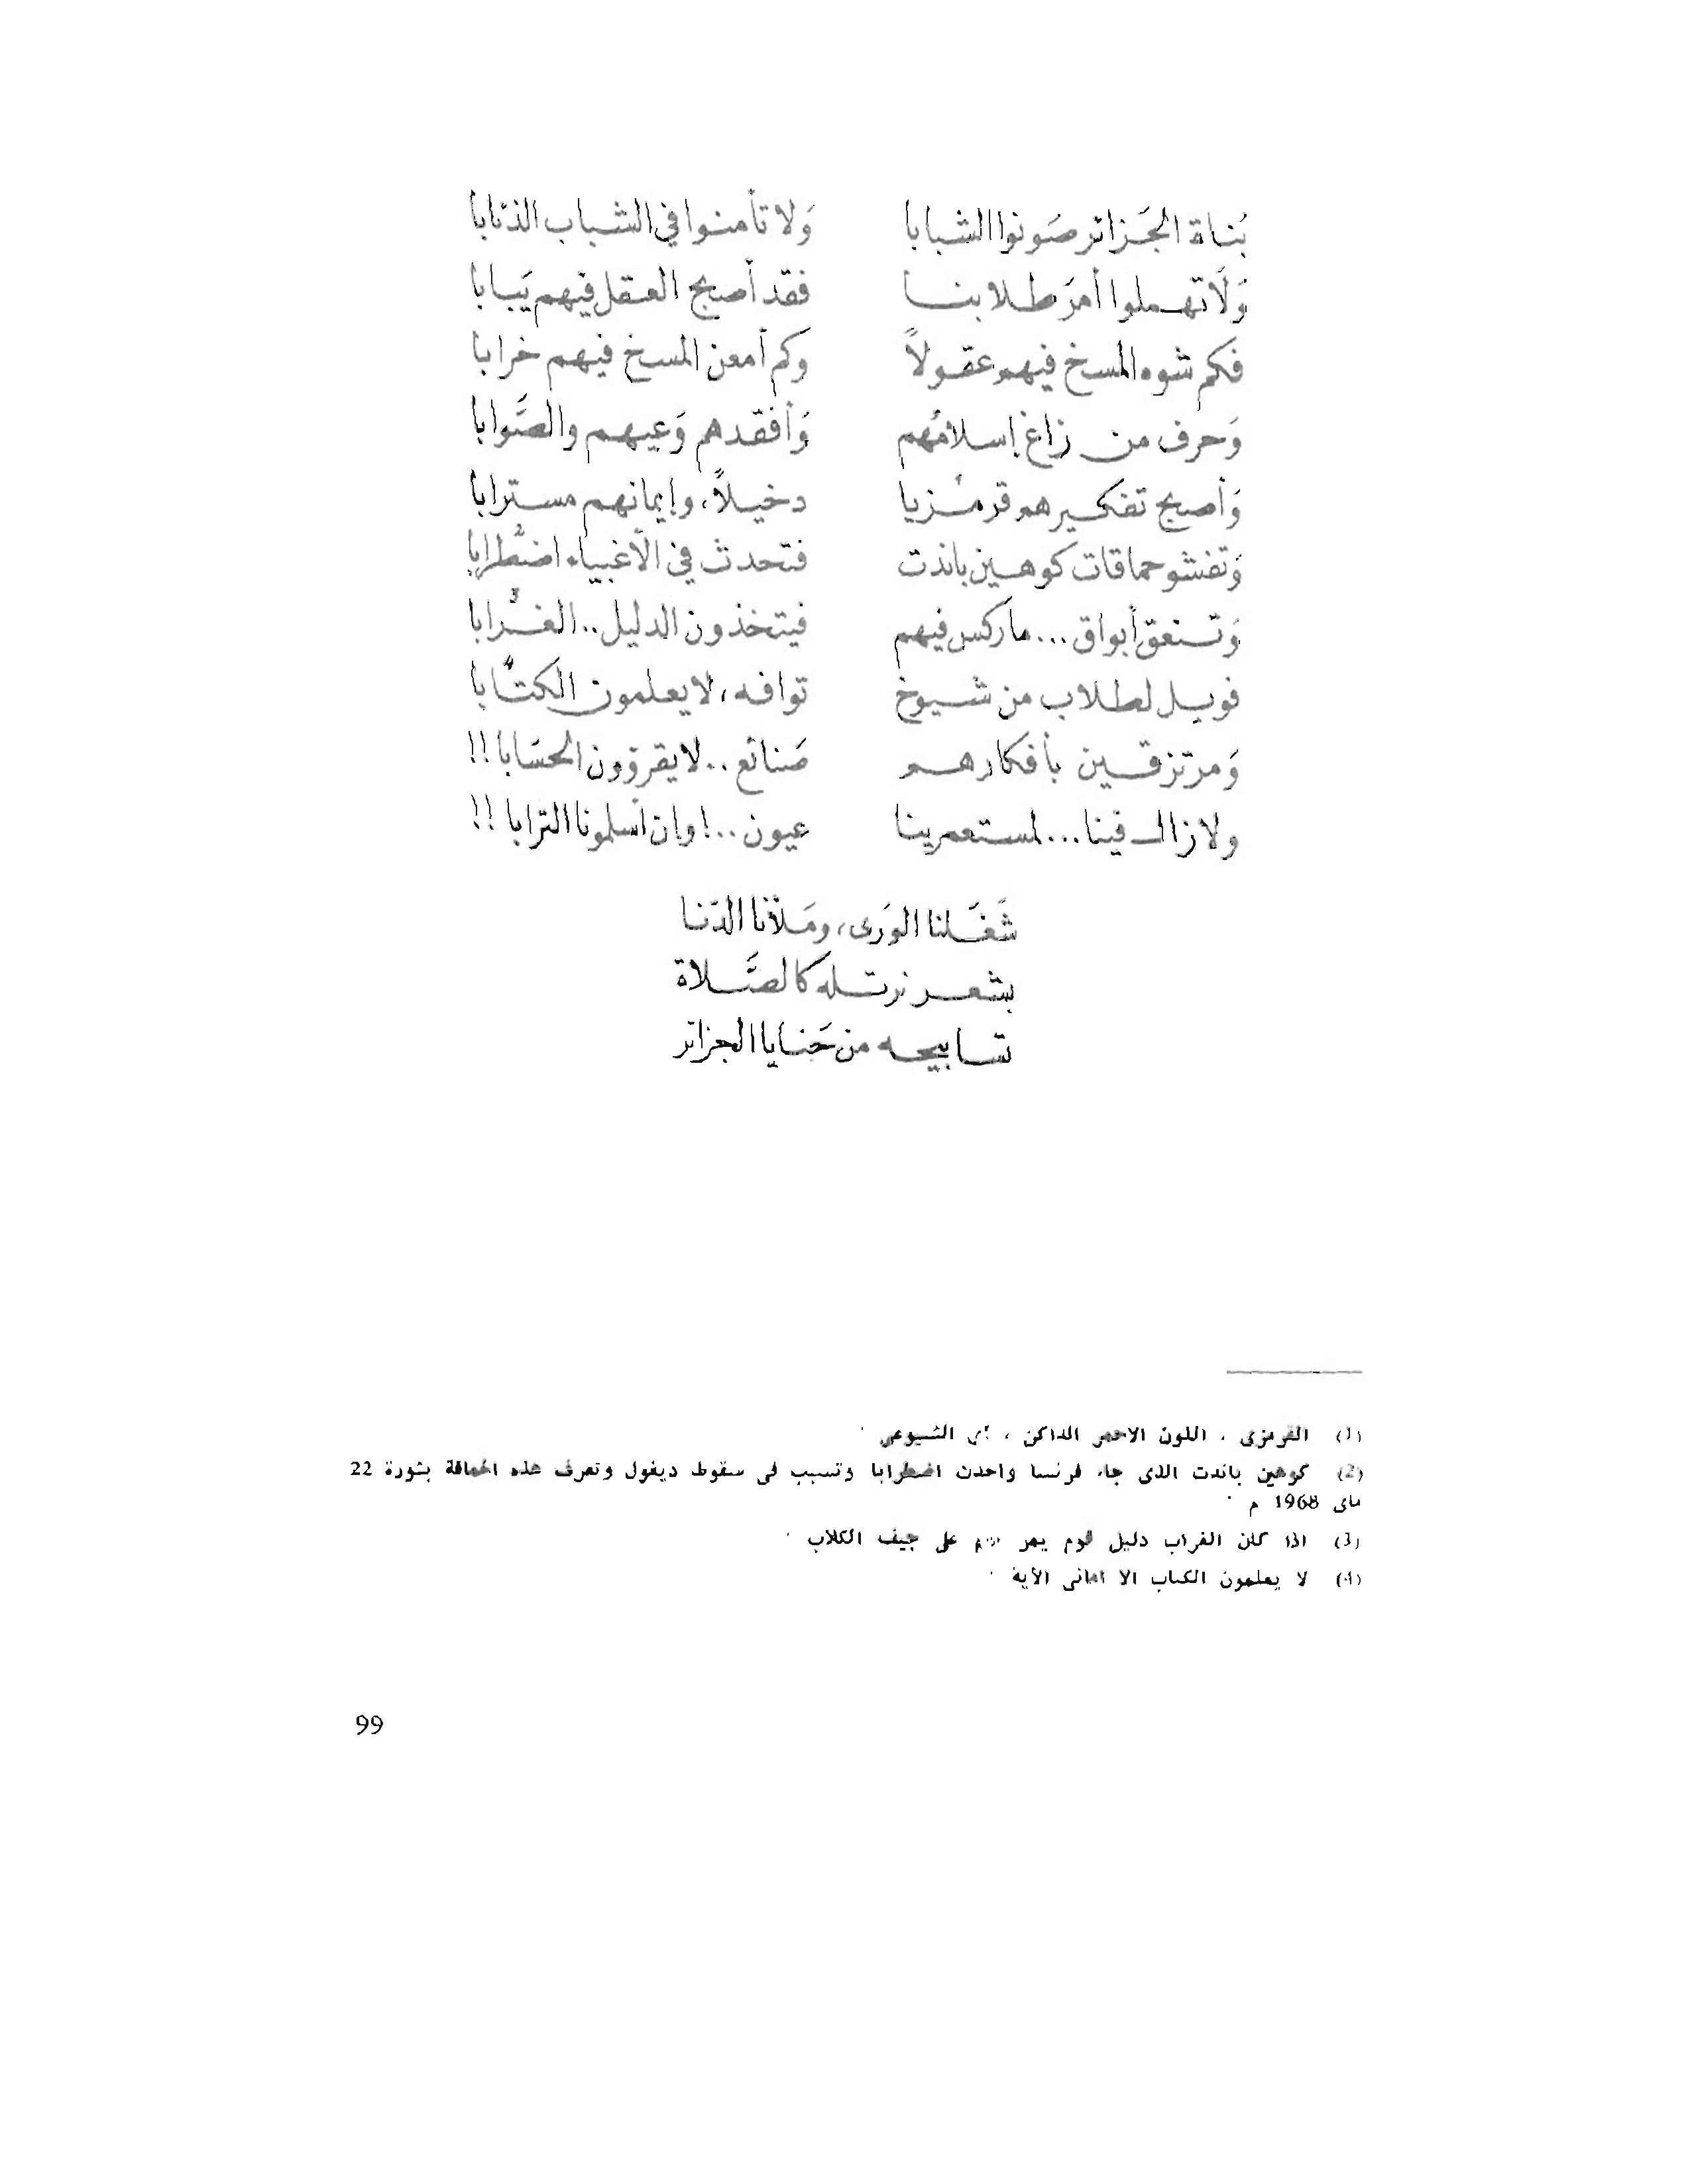 بُناة الجَزائر صَونوا الشبابا وَلا تأمنوا في الشباب الذئابا
وَلَا تهملوا أمرَ طلابنا فقد أصبح العقل فيهم يَبابا
فكم شوه المسخ فيهم عقولاً وكم أمعن المسخ فيهم خرابا
وَحرف من زاغ إسلامُهم وَأفقدهم وَعيهم والصَّوابا
وَأصبح تفكيرهم قرمزيا دخيلاً، وإيمانهم مسترابا
وَتفشو حماقات كوهين باندت فتحدث في الأغبياء اضطرابا2
وَتنعق أبواق... ماركس فيهم فيتخذون الدليل.. الغُرابا3
فويل لطلاب من شيوخ توافه، لا يعلمون الكتابا4
وَمرتزقين بأفكارهم صَنائع.. لا يقرؤون الحسَابا!!
ولا زال فينا... لمستعمرينا عيون..! وان أسلمونا الترابا!!
شَغَلنا الوَرى، ومَلأنا الدّنا
بشعر نرتله كالصَّلاة
تسابيحه من حَنايا الجزائر
(1) القرمزى ، اللون الاحمر الداكن ، أى الشيوعى .
(2) كوهين باندت الذى جاء فرنسا واحدث اضطرابا وتسبب فى سقوط ديغول وتعرف هذه الحماقة بثورة 22
ماى 1968 م .
(3) اذا كان الغراب دليل قوم يمر على جيف الكلاب .
(4) لا يعلمون الكتاب الا امانى الآية .
99